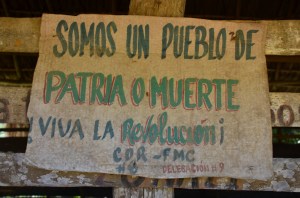 SOMOS UN PUEBLO DE
PATRIA O MUERTE
¡VIVA LA Revolución¡
CDR-FMC
#6 DELEGACION #9